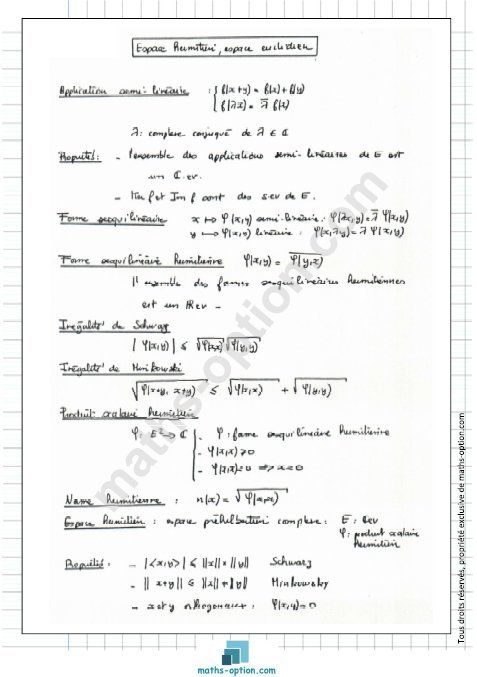 Espace hermitien, espace euclidien
Application semi-linéaire : { f(x+y) = f(x) + f(y)
f(λx) = λ̄ f(x)
λ̄ : complexe conjugué de λ ∈ ℂ
Propriétés : - l'ensemble des applications semi-linéaires de E est
un ℂ.ev.
- Ker f et Im f sont des s.ev de E.
Forme sesquilinéaire x ↦ φ(x,y) semi-linéaire : φ(λx,y) = λ̄ φ(x,y)
y ↦ φ(x,y) linéaire : φ(x,λy) = λ φ(x,y)
Forme sesquilinéaire hermitienne φ(x,y) = \overline{φ(y,x)}
l'ensemble des formes sesquilinéaires hermitiennes
est un ℝev -
Inégalité de Schwarz
|φ(x,y)| ≤ √φ(x,x) √φ(y,y)
Inégalité de Minkowski
√φ(x+y, x+y) ≤ √φ(x,x) + √φ(y,y)
Produit scalaire hermitien
φ : E² → ℂ { - φ : forme sesquilinéaire hermitienne
- φ(x,x) ≥ 0
- φ(x,x) = 0 ⇒ x = 0
Norme hermitienne : n(x) = √φ(x,x)
Espace hermitien : espace préhilbertien complexe : E : ℂev
φ : produit scalaire
hermitien
Propriétés : - |<x,y>| ≤ ||x|| × ||y|| Schwarz
- ||x+y|| ≤ ||x|| + ||y|| Minkowsky
- x et y orthogonaux : φ(x,y) = 0
maths-option.com
Tous droits réservés, propriété exclusive de maths-option.com
maths-option.com